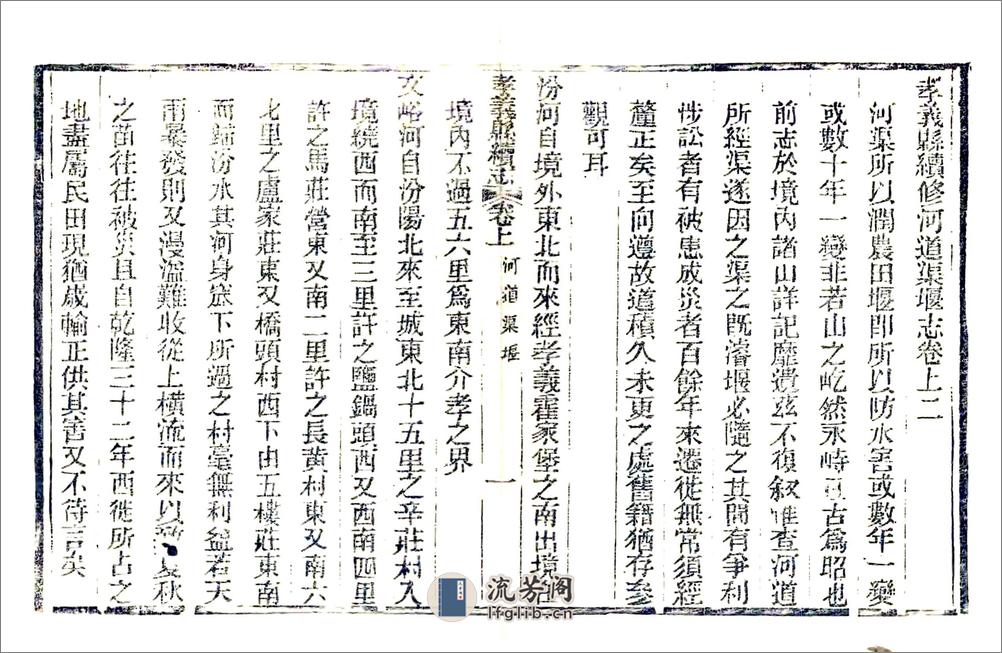 孝義縣續修河道渠堰志卷上二
河渠所以潤農田堰即所以防水害或數年一變
或數十年一變非若山之屹然永峙亘古爲昭也
前志於境內諸山詳記靡遺茲不復敘惟查河道
所經渠遂因之渠之既濬堰必隨之其間有爭利
涉訟者有被患成災者百餘年來遷徙無常須經
釐正矣至向遵故道積久未更之處舊籍猶存參
觀可耳
汾河自境外東北而來經孝義霍家堡之南出境
孝義縣續志
卷上
河道渠堰
一
境內不過五六里爲東南介孝之界
文峪河自汾陽北來至城東北十五里之辛莊村入
境繞西而南至三里許之鹽鍋頭西又西南四里
許之馬莊營東又南二里許之長黃村東又南六
七里之盧家莊東又橋頭村西下由五樓莊東南
而歸汾水其河身底下所過之村毫無利益若天
雨暴發則又漫溢難收從上橫流而來以夏秋
之苗往往被災且自乾隆三十二年西徙所占之
地盡屬民田現猶歲輸正供其害又不待言矣
流芳阁
lfglib.cn